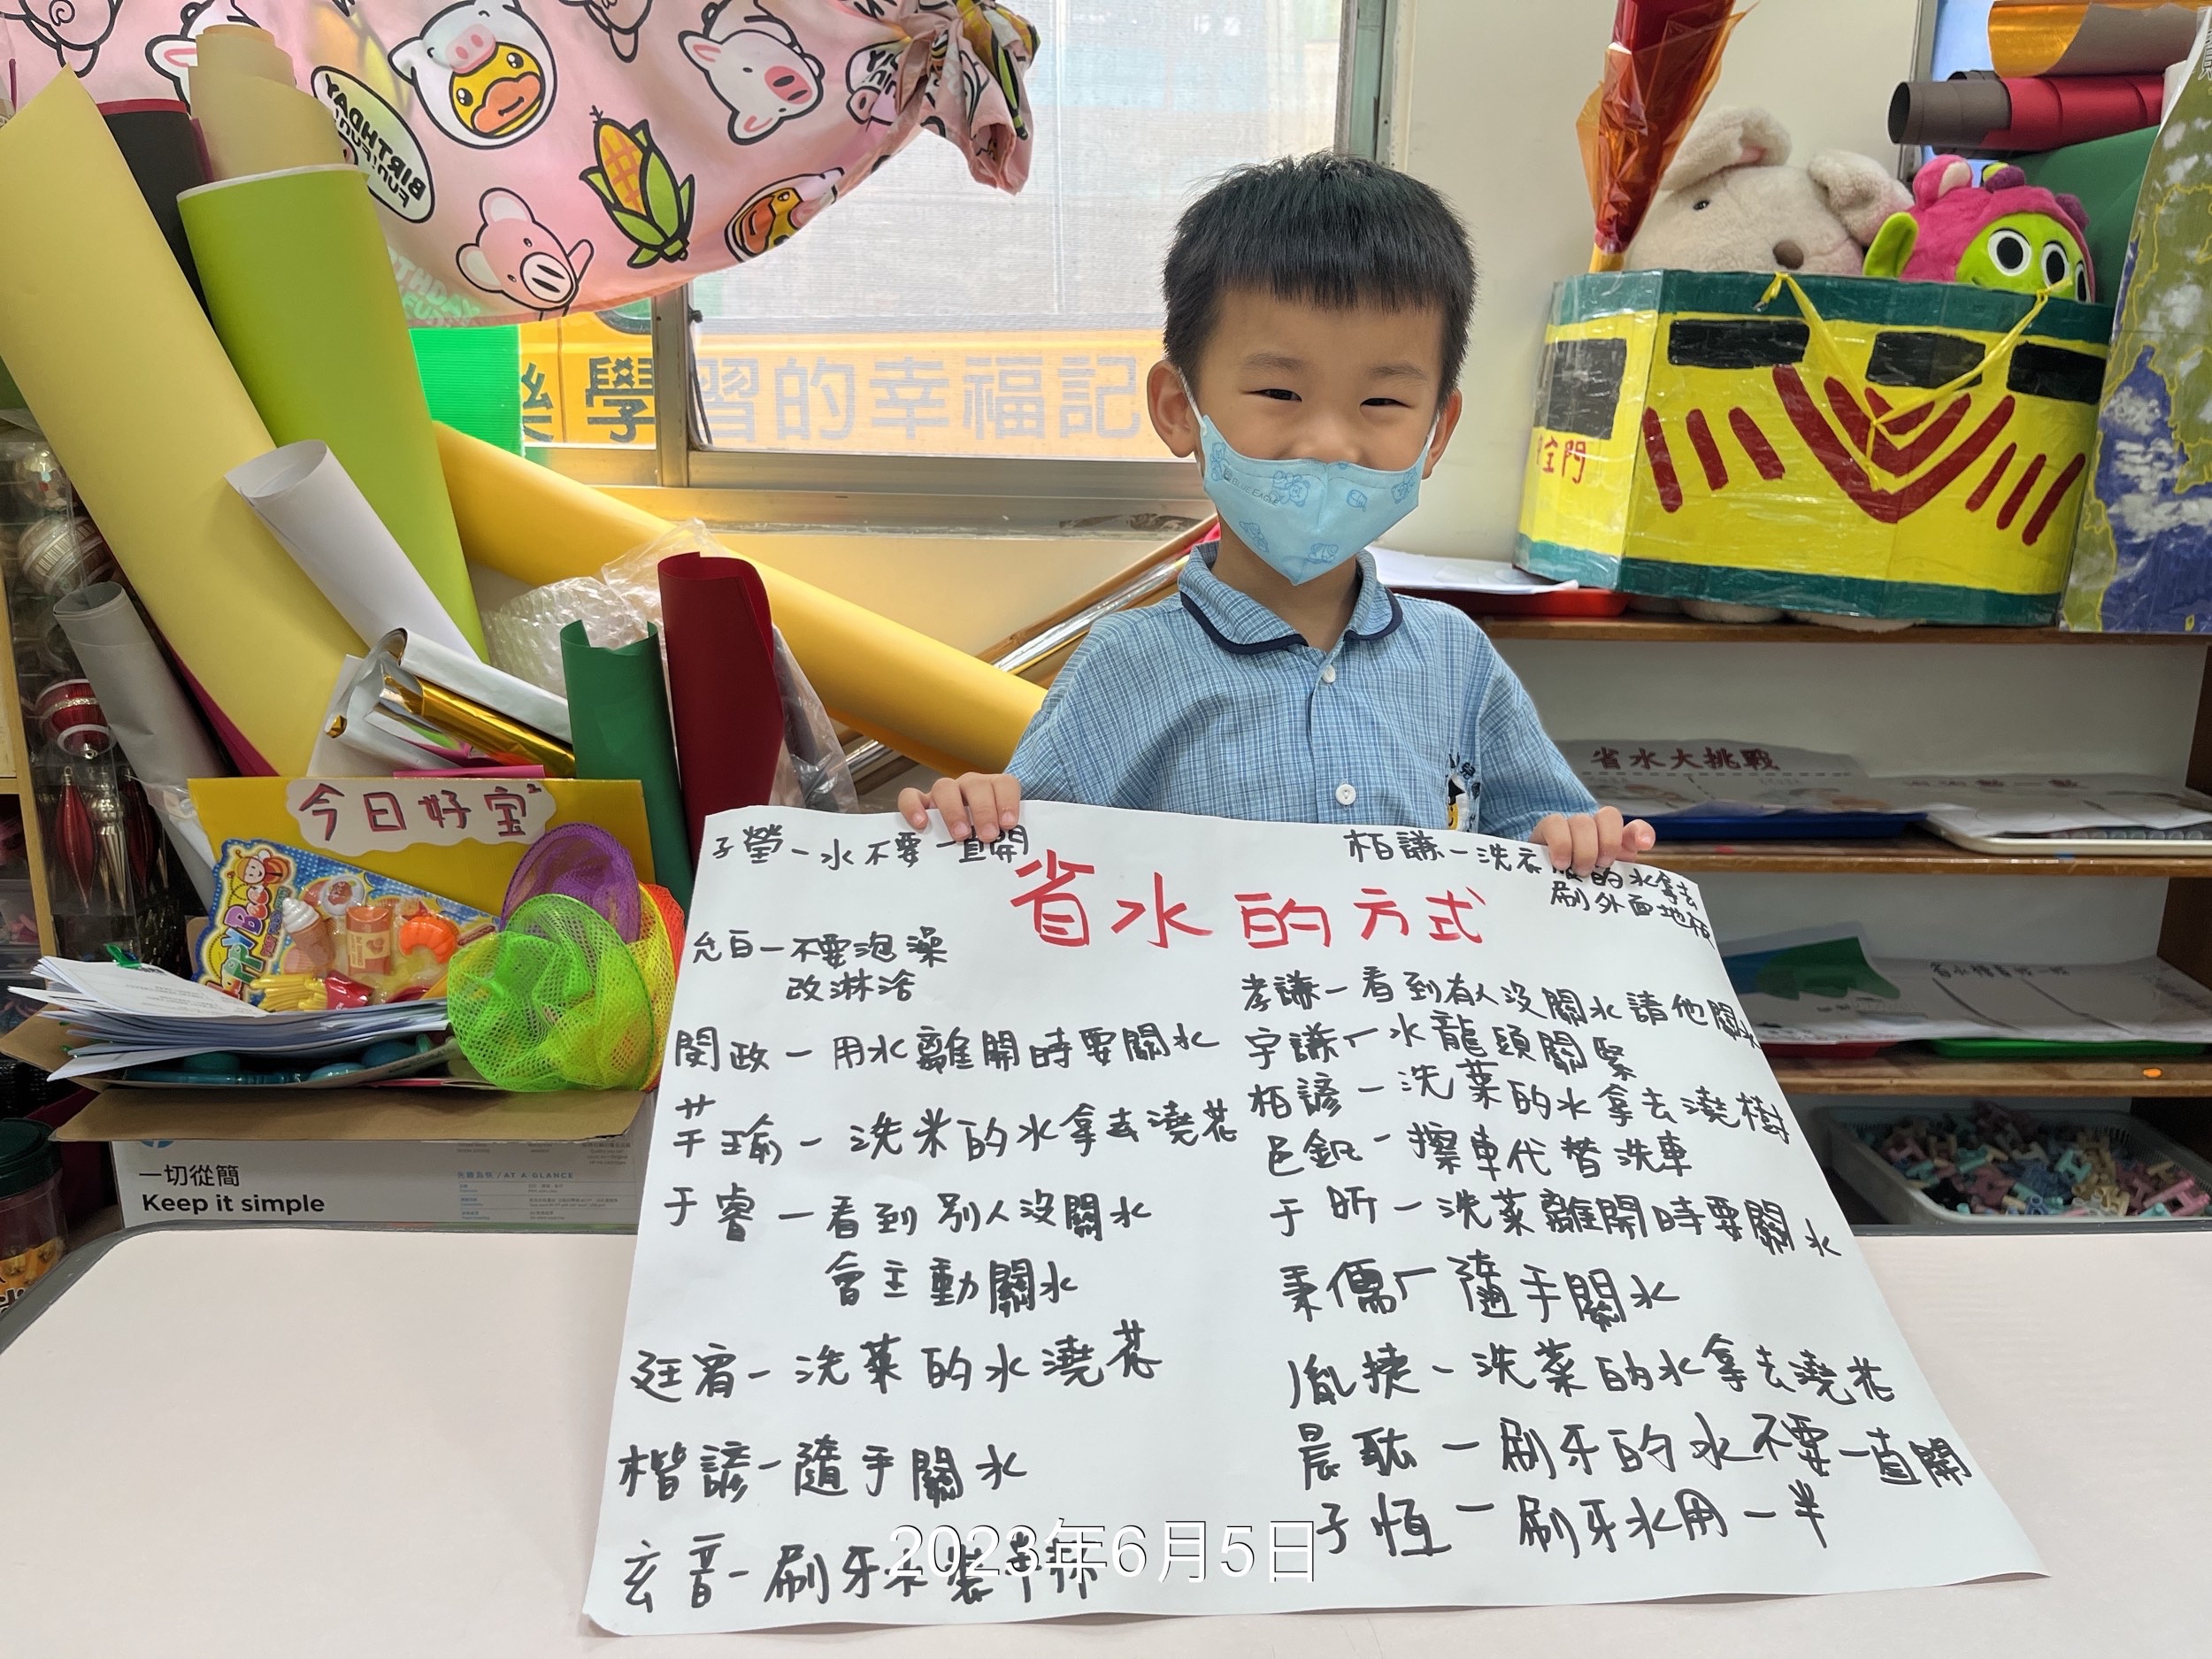 BIRTHDAY
FUN!FUN!
樂學習的幸福記
全門
BLUE EAGLE
今日好宝²
Happy Bee
省水大挑戰
一切從簡
Keep it simple
AT A GLANCE
省水的方式
子瑩-水不要一直開
允白-不要泡澡
改淋浴
閔政-用水離開時要關水
芊瑜-洗米的水拿去澆花
于睿-看到別人沒關水
會主動關水
廷宥-洗菜的水澆花
楷諺-隨手關水
玄音-刷牙水裝半杯
柏謙-洗衣服的水拿去
刷外面地板
孝謙-看到有人沒關水請他關水
宇謙-水龍頭關緊
柏諺-洗菜的水拿去澆樹
邑釩-擦車代替洗車
于昕-洗菜離開時要關水
秉儒-隨手關水
胤捷-洗菜的水拿去澆花
晨耘-刷牙的水不要一直開
子恆-刷牙水用一半
2023年6月5日